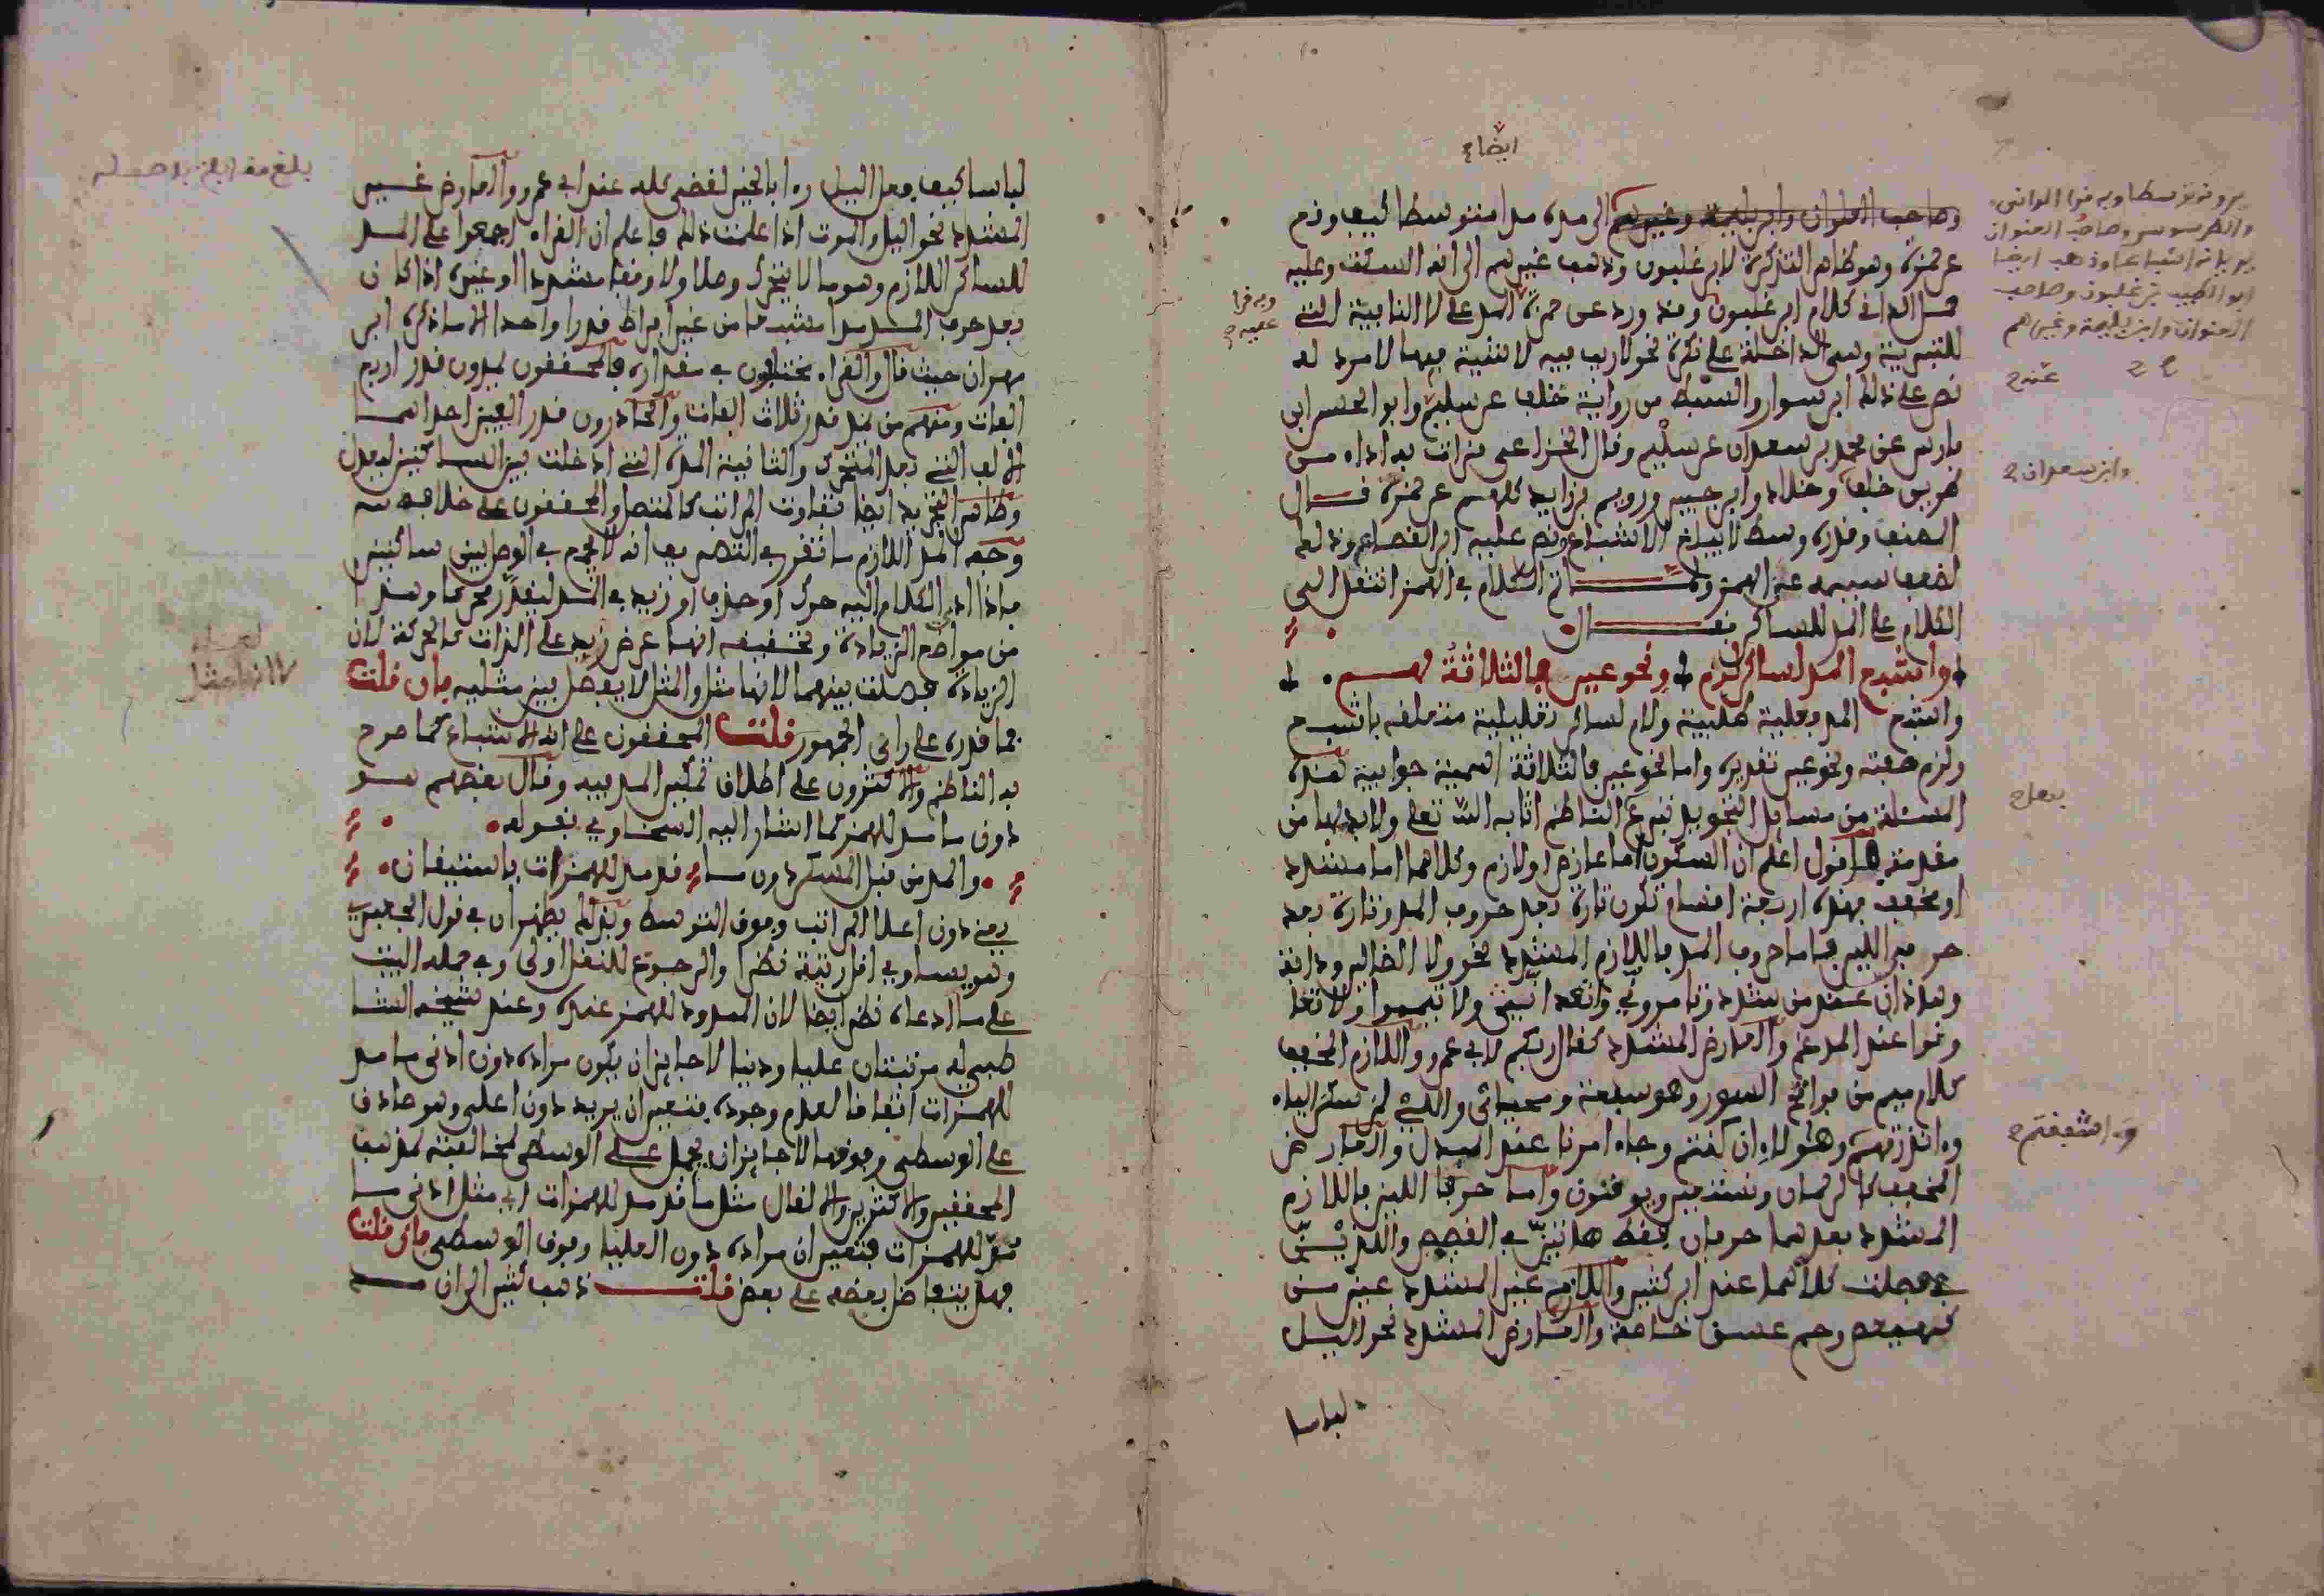 ايضا
وصاحب العنوان وابن بليمة وغيرهم الى مده مدا متوسطا كيف وقع
عن حمزة وهو ظاهر التذكرة لابن غلبون وذهب غيرهم الى انه السكت وعليه
حمل الداني كلام ابن غلبون وقد ورد عن حمزة المد على لا النافية التي
للتبرية وهي الداخلة على نكرة نحو لا ريب فيه لا شية فيها لا مرد له
نص على ذلك ابن سوار والسبط من رواية خلف عن سليم وابو الحسن ابن
فارس عن محمد بن سعدان عن سليم وقال الخزاعي قرات به اداء من
طريق خلف وخلاد وابن جبير ورويم بن زايد كلهم عن حمزة قال
المصنف وقدره وسط لا يبلغ الاشباع ونص عليه ابن القصاع وذلك
لضعف سببه عن الهمز ولما تم الكلام في الهمز انتقل الى
الكلام على المد للساكن فقال
واشبع المد لساكن لزم ونحو عين فالثلاثة لهم
واشبع المد فعلية طلبية ولام لساكن تعليلية متعلقه باشبع
ولزم صفته ونحو عين تقديره واما نحو عين فالثلاثة اسمية جوابية هذه
المسئلة من مسايل التجويد تبرع الناظم اثابه الله تعلى ولا بد لها من
مقدمة فاقول اعلم ان السكون اما عارض او لازم وكلاهما اما مشدد
او مخفف فهذه اربعة اقسام تكون تارة بعد حروف المد وتارة بعد
حرفي اللين فاما حروف المد فاللازم المشدد نحو ولا الضالين ودابة
وهذان عند من شدد وتامروني واتعدانني ولا تيمموا ولا تعا
ونوا عند المدغم والعارض المشدد كقال ربكم لابي عمرو واللازم المخفف
كلام ميم من فواتح السور وهو سبعة ومحياي واللاي لمن سكن الياء
وءانذرتهم وهؤلاء ان كنتم وجاء امرنا عند المبدل والعارض
المخفف كالرحمان ونستعين ويوقنون واما حرفا اللين فاللازم
المشدد بعدهما حرفان فقط هاتين في القصص واللذين
في فصلت كلاهما عند ابن كثير واللازم غير المشدد عين من
كهيعص وحم عسق خاصة والعارض المشدد نحو اليل
لباسا
وبه قرا
عليه
يروونه توسطا وبه قرا الداني
والطرسوسي وصاحب العنوان
يريانه اشباعا وذهب ايضا
ابو الطيب بن غلبون وصاحب
العنوان وابن بليمة وغيرهم
عنه
وابن سعدان
بعد
وءاشفقتم
لباسا كيف فعل اليل ره ابا الخير لقضي كله عند ابي عمرو والعارض غير
المشدد نحو اليل والموت اذا علمت ذلك فاعلم ان القراء اجمعوا على المد
للساكن اللازم وهو ما لا يتحرك وصلا ولا وقفا مشددا او غيره اذا كان
بعد حرف المد مدا مشبعا من غير افراط قدرا واحدا الا ما ذكره ابن
مهران حيث قال والقراء مختلفون في مقداره فالمحققون يمدون قدر اربع
الفات ومنهم من يمد قدر ثلاث الفات والحادرون قدر الفين احداهما
الالف التي بعد المتحرك والثانية المدة التي ادخلت بين الساكنين ليعدل
وظاهر التجريد ايضا تفاوت المراتب كالمتصل والمحققون على خلافه
وجه المد اللازم ما تقرر في التصريف انه لا يجمع في الوصل بين ساكنين
فاذا ادى الكلام اليه حرك او حذف او زيد في المد ليقدر محركا وهذا
من مواضع الزيادة وتحقيقه انها عرض زيد على الذات كالحركة لان
الزيادة فصلت بينهما لانها مثل والمثل لا يفصل بين مثليه فان قلت
فما قدره على راي الجمهور قلت المحققون على انه الاشباع كما صرح
به الناظم والاكثرون على اطلاق تمكين المد فيه وقال بعضهم هو
دون ما مد للهمز كما اشار اليه السخاوي بقوله
والمد من قبل المسكن دون ما قد مد للهمزات باستيقان
يعني دون اعلا المراتب وفوق التوسط وبذلك يظهر ان في قول الجعبري
وهو يساوي اقل رتبة نظرا والرجوع للنقل اولى وفي حمله البيت
على ما ادعاه نظر ايضا لان الممدود للهمز عنده وعند شيخه الشا
طبي له مرتبتان عليا ودنيا لا جايز ان يكون مراده دون ادنى ما مد
للهمزات اتفاقا لعدم وجوده فتعين ان يريد دون اعلى وهو صادق
على الوسطى وفوقها لا جايز ان يحمل على الوسطى لمخالفته لمذهب
المحققين والاكثرين والا لقال مثل ما قد مد للهمزات اي مثل ادنى ما
مد للهمزات فتعين ان مراده دون العليا وفوق الوسطى فان قلت
فهل يتفاضل بعضه على بعض قلت ذهب كثير الى ان مد
بلغ مقابلة بلاصله
لانها مثل